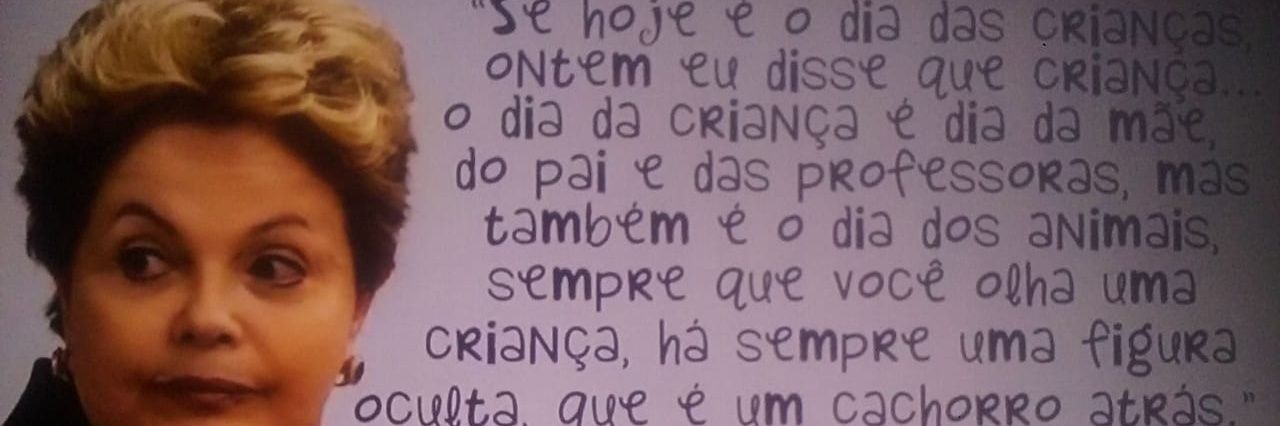 "Se hoje é o dia das crianças,
ontem eu disse que criança...
o dia da criança é dia da mãe,
do pai e das professoras, mas
também é o dia dos animais,
sempre que você olha uma
criança, há sempre uma figura
oculta, que é um cachorro atrás."